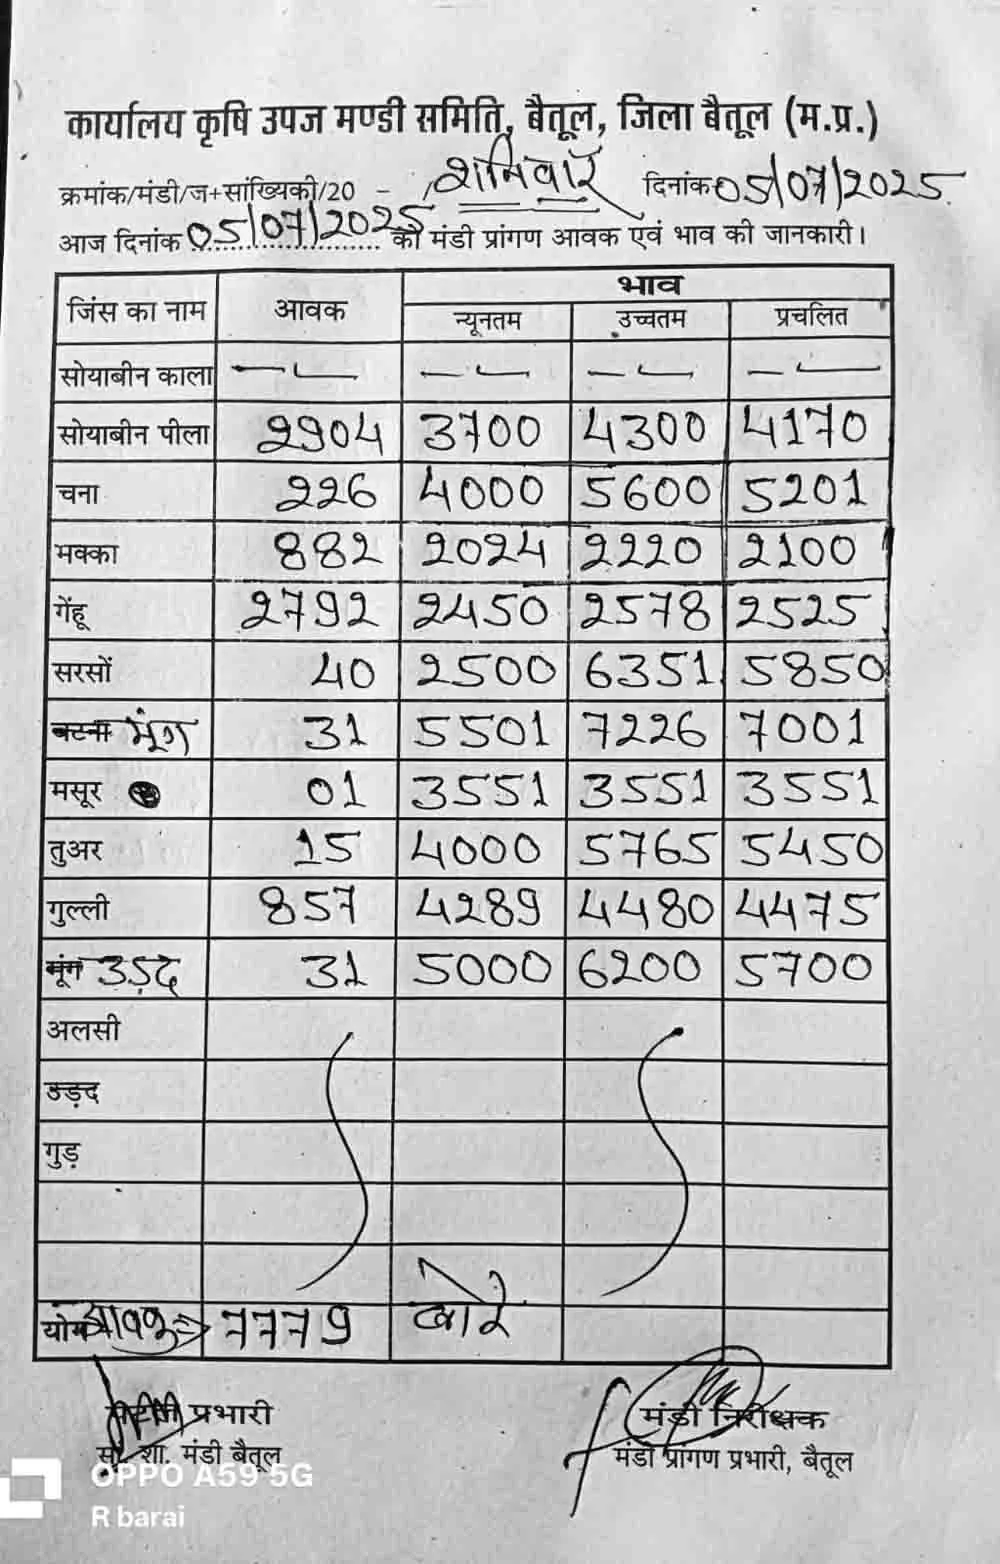 कार्यालय कृषि उपज मण्डी समिति, बैतूल, जिला बैतूल (म.प्र.)
क्रमांक/मंडी/ज+सांख्यिकी/20 - शनिवार दिनांक 05/07/2025
आज दिनांक 05/07/2025 को मंडी प्रांगण आवक एवं भाव की जानकारी।
जिंस का नाम आवक भाव
न्यूनतम उच्चतम प्रचलित
सोयाबीन काला — — — — — — — —
सोयाबीन पीला 2904 3700 4300 4170
चना 226 4000 5600 5201
मक्का 882 2024 2220 2100
गेंहू 2792 2450 2578 2525
सरसों 40 2500 6351 5850
बटना मूंग 31 5501 7226 7001
मसूर 01 3551 3551 3551
तुअर 15 4000 5765 5450
गुल्ली 857 4289 4480 4475
मूंग उड़द 31 5000 6200 5700
अलसी
उड़द
गुड़
योग आवक => 7779 बोरे
प्रभारी
शा. मंडी बैतूल
मंडी निरीक्षक
मंडी प्रांगण प्रभारी, बैतूल
OPPO A59 5G
R barai